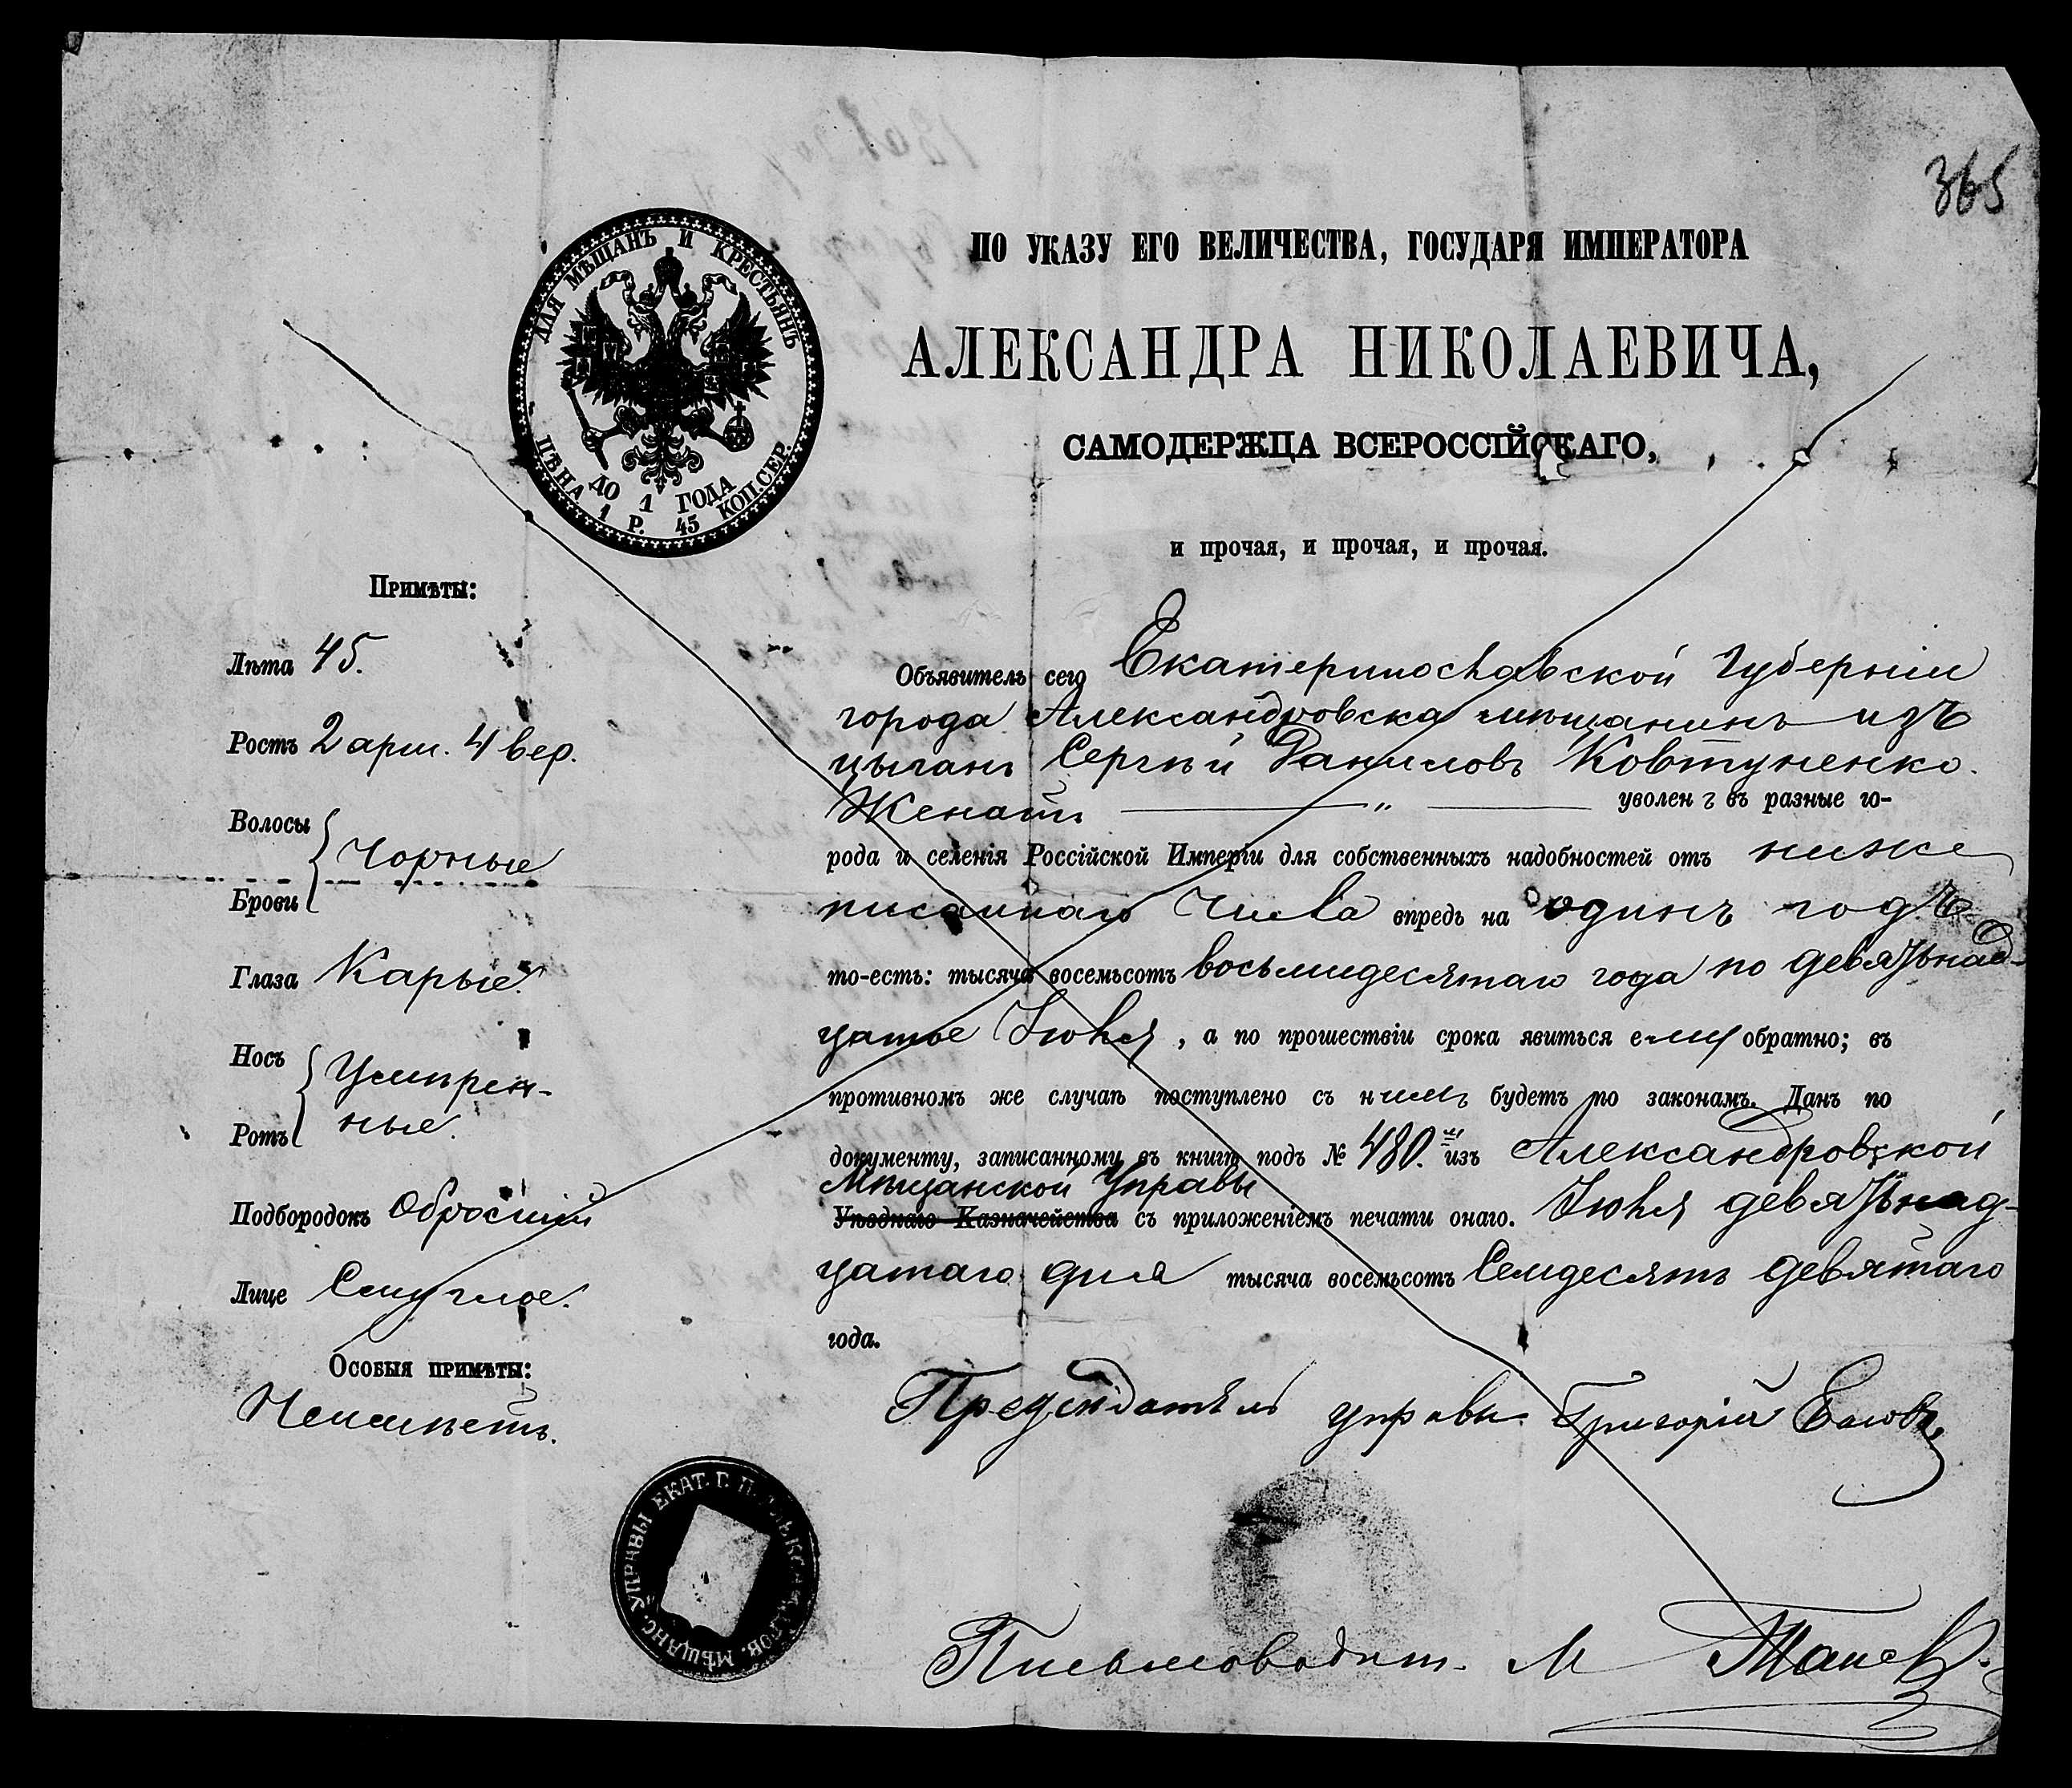 365
ДЛЯ МѢЩАНЪ И КРЕСТЬЯНЪ
ЦѢНА 1 Р. 45 КОП. СЕР.
ДО 1 ГОДА
ПО УКАЗУ ЕГО ВЕЛИЧЕСТВА, ГОСУДАРЯ ИМПЕРАТОРА
АЛЕКСАНДРА НИКОЛАЕВИЧА,
САМОДЕРЖЦА ВСЕРОССІЙСКАГО,
и прочая, и прочая, и прочая.
Примѣты:
Лѣта 45.
Ростъ 2 арш. 4 вер.
Волосы
Чорные
Брови
Глаза Карые.
Носъ
Умѣрен-
ные.
Ротъ
Подбородокъ Обросшій
Лице Смуглое.
Особыя примѣты:
Неимѣетъ.
Объявитель сего Екатеринославской Губерніи
города Александровска мѣщанинъ изъ
цыганъ Сергѣй Даниловъ Ковтуненко.
Женатъ — " — уволенъ въ разные го-
рода и селенія Россійской Имперіи для собственныхъ надобностей отъ ниже
писаннаго Числа впредь на одинъ годъ
то-есть: тысяча восемьсотъ восьмидесятаго года по девятьнад-
цатое Іюля, а по прошествіи срока явиться ему обратно; въ
противномъ же случаѣ поступлено съ нимъ будетъ по законамъ. Данъ по
документу, записанному въ книгѣ подъ № 480. изъ Александровской
Мѣщанской Управы
Уѣзднаго Казначейства съ приложеніемъ печати онаго. Іюля девятьнад-
цатаго дня тысяча восемьсотъ Семдесятъ девятаго
года.
Предсѣдатель управы Григорій
УПРАВЫ ЕКАТ. Г. МѢЩАНС.
Письмоводит. М